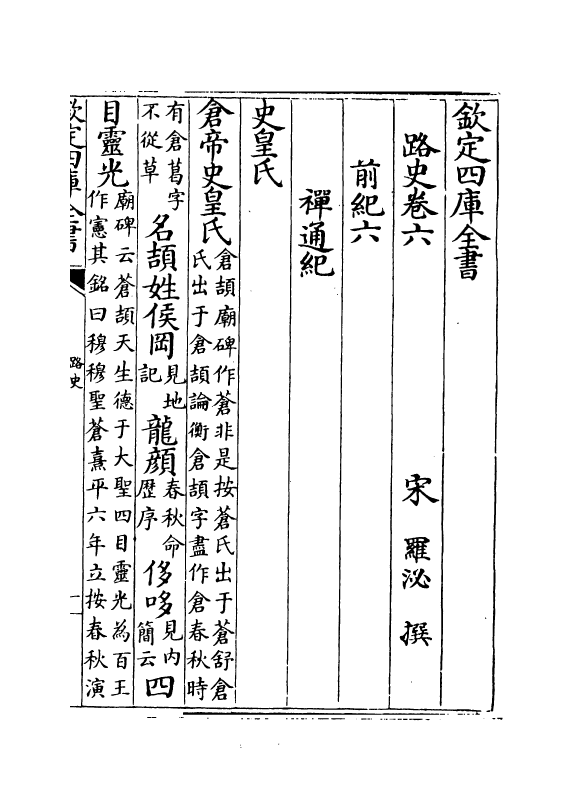 欽定四庫全書
路史卷六
宋 羅泌 撰
前紀六
禪通紀
史皇氏
倉帝史皇氏倉頡廟碑作蒼非是按蒼氏出于蒼舒倉
氏出于倉頡論衡倉頡字盡作倉春秋時
有倉葛字
不從草名頡姓侯岡見地
記龍顔春秋命
歴序侈哆見内
簡云四
目靈光廟碑云蒼頡天生德于大聖四目靈光為百王
作憲其銘曰穆穆聖蒼熹平六年立按春秋演
欽定四庫全書
路史
一